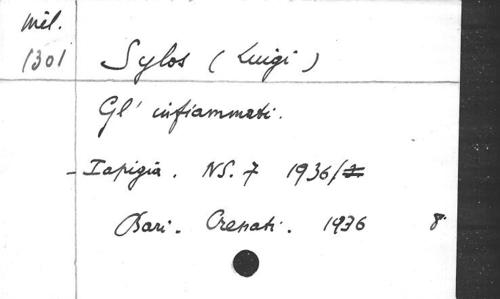 Mél.
1301
Sylos (Luigi)
Gl' infiammati.
- Iapigia. NS. 7 1936/
Bari. Cressati. 1936 8°